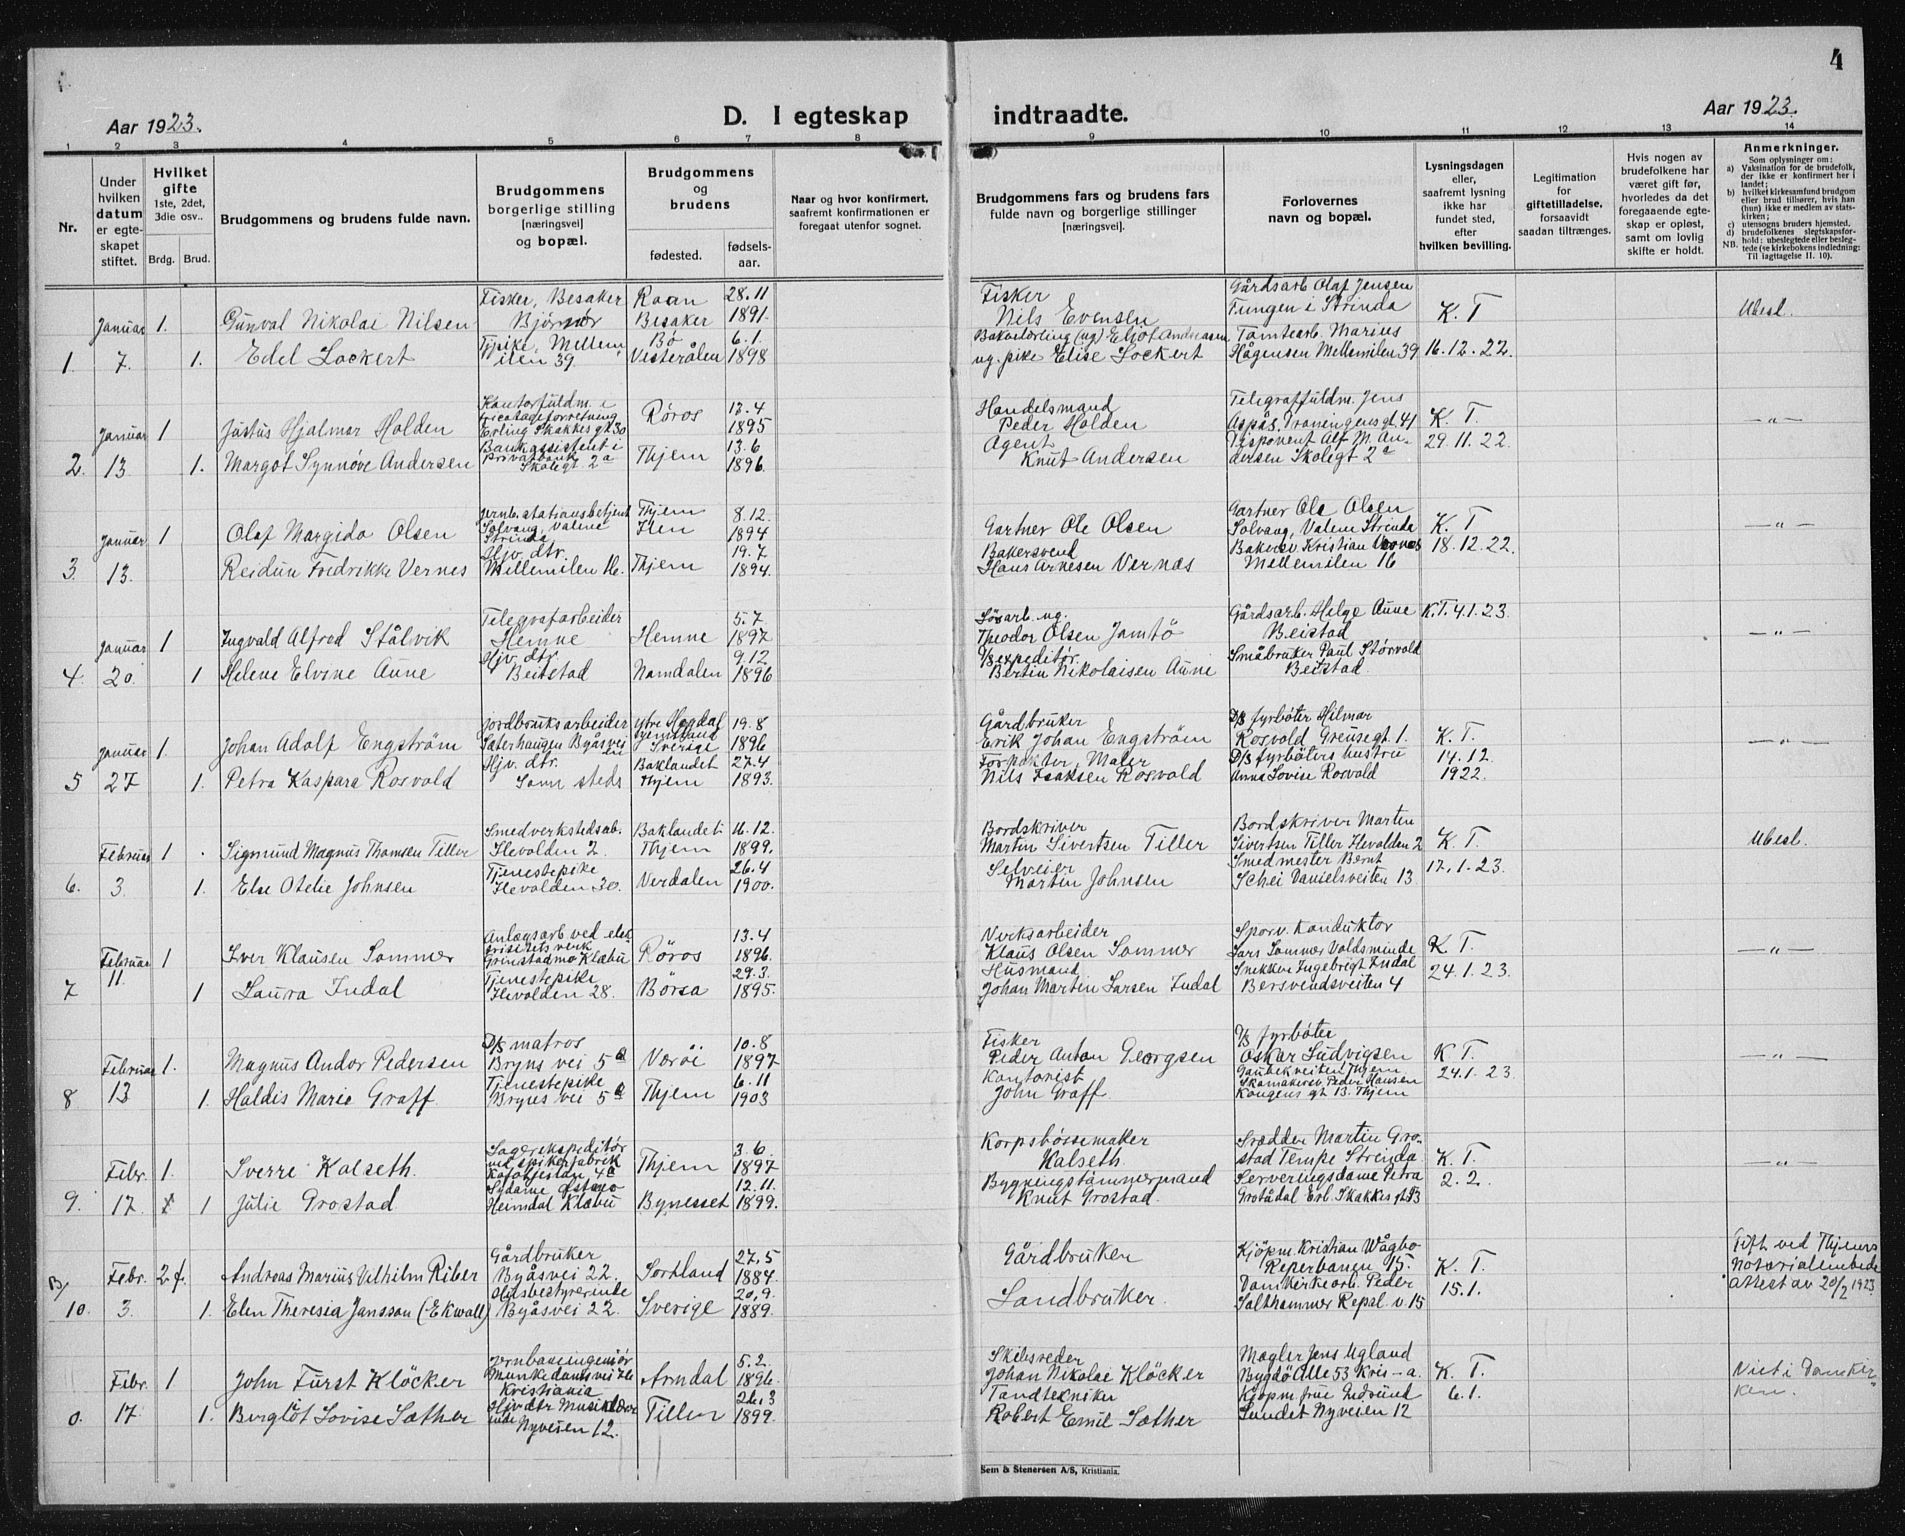 4
Aar 1923.
D. I egteskap indtraadte.
Aar 1923.
1 2 3 4 5 6 7 8 9 10 11 12 13 14
Nr.
Under hvilken datum er egteskapet stiftet.
Hvilket gifte 1ste, 2det, 3die osv..
Brdg. Brud.
Brudgommens og brudens fulde navn.
Brudgommens borgerlige stilling [næringsvei] og bopæl.
Brudgommens og brudens
fødested. fødsels-aar.
Naar og hvor konfirmert, saafremt konfirmationen er foregaat utenfor sognet.
Brudgommens fars og brudens fars fulde navn og borgerlige stillinger [næringsvei].
Forlovernes navn og bopæl.
Lysningsdagen eller, saafremt lysning ikke har fundet sted, efter hvilken bevilling.
Legitimation for giftetilladelse, forsaavidt saadan tiltrænges.
Hvis nogen av brudefolkene har været gift før, hvorledes da det foregaaende egteskap er opløst, samt om lovlig skifte er holdt.
Anmerkninger.
Som oplysninger om:
a) Vaksination for de brudefolk, der ikke er konfirmert her i landet;
b) hvilket kirkesamfund brudgom eller brud tilhører, hvis han (hun) ikke er medlem av statskirken;
c) utensogns bruders hjemsted.
d) brudefolkenes slegtskapsforhold: ubeslegtede eller beslegtede (se kirkebokens indledning: Til iagttagelse II. 10).
NB.
1. Januar 7. 1. 1.
Gunval Nikolai Nilsen
Edel Lockert
Fisker, Besaker
Bjørnør
Tj.pike, Mellem
ilen 39.
Roan
Besaker
Bø
Vesterålen
28.11
1891.
6.1.
1898
Fisker
Nils Evensen
ug. pike Elise Lockert
Gårdsarb Olaf Jensen
Tungen i Strinda
Tomtearb. Marius
Hågensen Mellemilen 39
K. T
16.12.22.
Ubesl.
2. Januar 13 1 1.
Justus Hjalmar Holden
Margot Synnøve Andersen
Kontorfuldm. i
tricotageforretning
Erling Skakkes gt 30
Bankassistent i
Privatbank
Skolegt 2a
Røros
Thjem
13.4
1895
13.6
1896.
Handelsmand
Peder Holden
Agent
Knut Andersen
Telegraffuldm. Jens
Aspås, Dronningens gt. 41
Disponent Alf M. An-
dersen Skolegt 2a
K. T.
29.11.22.
— " —
3. Januar 13. 1
Olaf Margido Olsen
Reidun Fredrikke Vernes
Jernb. stationsbetjent
Solvang, Valene
Strinda
Hjv. dtr.
Mellemilen 16.
Thjem
Ilen
Thjem
8.12.
1894
19.7
1894.
Gartner Ole Olsen
Bakersvend
Hans Arnesen Vernæs
Gartner Ole Olsen
Solvang, Valene Strinda
Bakersv. Kristian Vernes
Mellemilen 16
K. T
18.12.22.
— " —
4. Januar 20. 1 1
Ingvald Alfred Stålvik
Helene Elvine Aune
Telegrafarbeider
Hemne
Hjv. dtr.
Beitstad
Hemne
Namdalen
5.7
1897
9.12
1896
Søarb. ug.
Theodor Olsen Jamtö
D/S expeditör
Bertin Nikolaisen Aune
Gårdsarb. Helge Aune
Beistad
Småbruker Paul Störvold
Beistad.
K.T. 4.1.23.
— " —
5 Januar 27 1. 1.
Johan Adolf Engström
Petra Kaspara Rosvold
Jordbruksarbeider
Sæterhaugen Byåsvei
en
Hjv. dtr.
Som steds
Ytre Hogdal
Sverige
Baklandet
Thjem
19.8
1896
27.4
1893.
Gårdbruker
Erik Johan Engström
Forpakter, Maler
Nils Isaksen Rosvold
D/S fyrböter Hilmar
Rosvold Grensegt. 1.
D/S fyrböters hustru
Anna Lovise Rosvold
K. T.
14.12.
1922.
— " —
6. Februar 3 1 1.
Sigmund Magnus Thomsen Tiller
Else Otelie Johnsen
Smedverkstedsab.
Ilevolden 2.
Tjenestepike
Ilevolden 30.
Baklandet
Thjem
Verdalen
16.12.
1899.
26.4
1900.
Bordskriver
Martin Sivertsen Tiller
Selveier
Martin Johnsen
Bordskriver Martin
Sivertsen Tiller Ilevolden 2
Smedmester Bernt
Schei Danielsveiten 13
K. T.
17.1.23.
Ubesl.
7 Februar 11. 1 1
Iver Klausen Sommer
Laura Indal
Anlægsarb ved elek
trisitets verk
Grinstadmo Klæbu
Tjenestepike
Ilevolden 28.
Røros
Börsa
13.4
1896.
29.3.
1895.
Verksarbeider
Klaus Olsen Sommer
Husmand
Johan Martin Larsen Indal
Sporv. Konduktor
Lars Sommer Voldsminde
Snekker Ingebrigt Indal
Bersvendsveiten 4
K. T.
24.1.23.
— " —
8 Februar 13 1. 1.
Magnus Andor Pedersen
Haldis Marie Graff.
D/S matros
Bryns vei 5a
Tjenestepike
Bryns vei 5a
Værøi
Thjem
10.8
1897
6.11
1903
Fisker
Peder Anton Georgsen
Kontorist
John Graff
D/S fyrböter
Oskar Ludvigsen
Gaubekveiten Thjem
Skomakersv. Peder Hansen
Kongens gt 13. Thjem
K T.
24.1.23.
— " —
9. Febr. 17. 1. 1
Sverre Kalseth.
Julie Grostad
Lagerekspeditör
ved spikerfabrik
4a
Sydame
Heimdal Klæbu
Thjem
Bynesset
3.6.
1897
12.11.
1899.
Korpsbössemaker
Kalseth.
Bygningstömmermand
Knut Grostad.
Skrædder Martin Gro-
stad Tempe Strinda.
Serveringsdame Petra
Grotådal Erl. Skakkes gt 53
K. T.
2.2.
— " —
B/ 10. Febr. 3. 2 f. 1.
Andreas Marius Vilhelm Riber
Elen Theresia Jansson (Ekwall)
Gårdbruker
Byåsvei 22.
Husbestyrerinde
Byåsvei 22.
Sortland
Sverige
27.5
1884.
20.9.
1889.
Gårdbruken
Landbruker.
Kjöpm. Kristian Wågbø
Reperbanen 15.
Damkirkearb. Peder
Salthammer Repsl. v. 15
K. T.
15.1.
Gift ved Thjems
Notarialembede
attest av 20/2 1923
0. Febr. 17. 1 1.
John Furst Klöcker
Bergljot Lovise Sæther
Jernbaneingeniør
Munkedamsvei
Kristiania
Hjv dtr Musiklærer
inde Nyveien 12.
Arndal
Tiller
5.2.
1896.
26.3
1899.
Skibsreder
Johan Nikolai Klöcker
Tandtekniker
Robert Emil Sæther
Mægler Jens Ugland
Bygdö Alle 53 Kris-a.
Kjöpm. frue Gudrund
Sundet Nyveien 12
K. T.
6.1.
Viet i Domkir
ken.
Sem & Stenersen A/S, Kristiania.